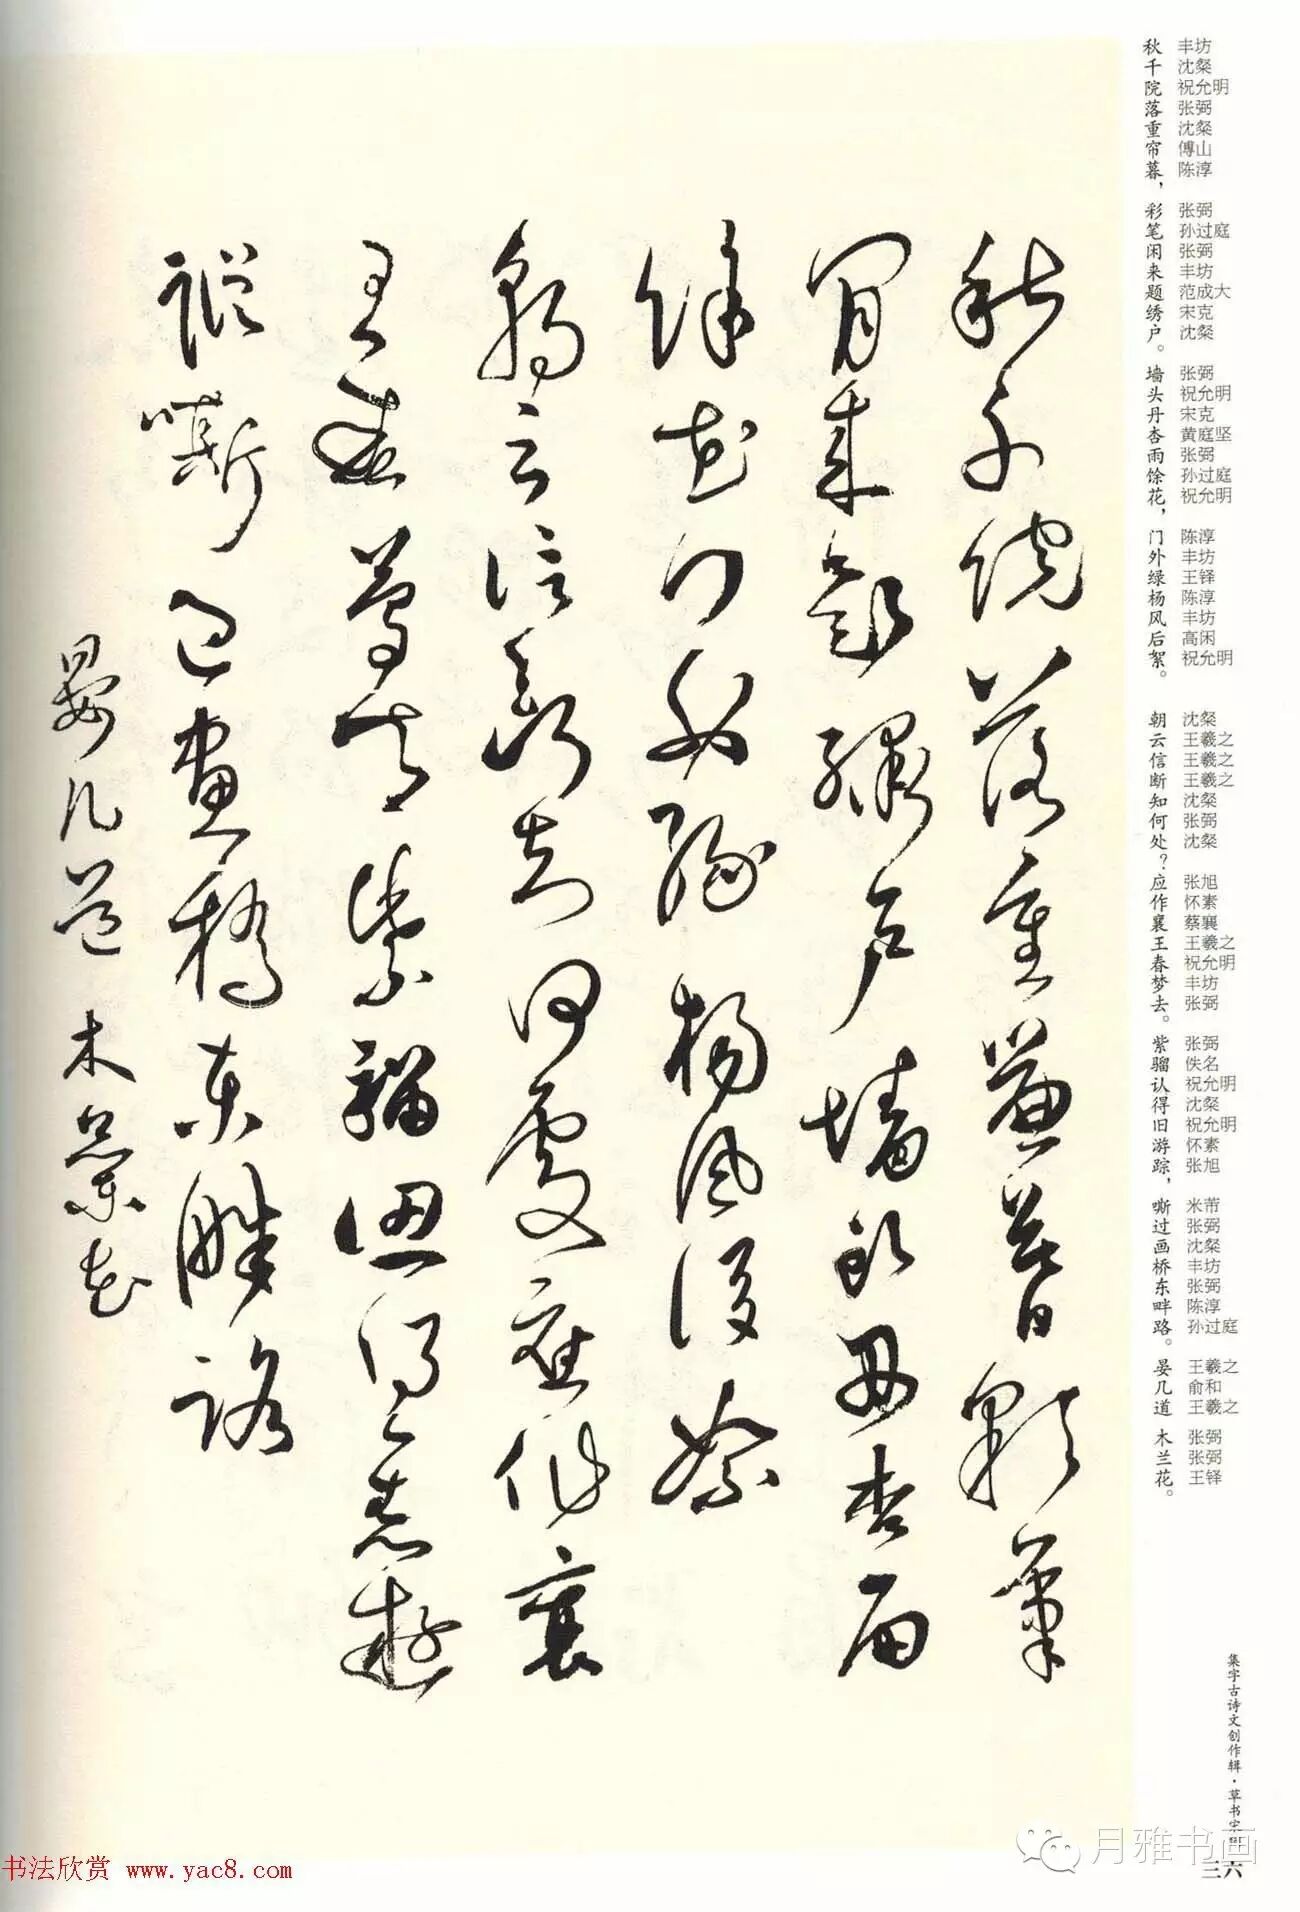 丰坊 沈粲 祝允明 张弼 沈粲 傅山 陈淳 张弼 孙过庭 张弼 丰坊 范成大 宋克 沈粲 张弼 祝允明 宋克 黄庭坚 张弼 孙过庭 祝允明 陈淳 丰坊 王铎 陈淳 丰坊 高闲 祝允明 沈粲 王羲之 王羲之 王羲之 沈粲 张弼 沈粲 张旭 怀素 蔡襄 王羲之 祝允明 丰坊 张弼 张弼 佚名 祝允明 沈粲 祝允明 怀素 张旭 米芾 张弼 沈粲 丰坊 张弼 陈淳 孙过庭 王羲之 俞和 王羲之 张弼 张弼 王铎
秋千院落重帘暮，彩笔闲来题绣户。墙头丹杏雨馀花，门外绿杨风后絮。 朝云信断知何处？应作襄王春梦去。紫骝认得旧游踪，嘶过画桥东畔路。 晏几道 木兰花。
秋千院落重簾暮彩筆
閒來題繡戶墻頭丹杏雨
餘花門外綠楊風後絮
朝云信斷知何處應作襄
王春夢去紫騮認得舊遊
蹤嘶過畫橋東畔路
晏几道 木蘭花
集字古诗文创作辑·草书宋
三六
月雅书画
书法欣赏 www.yac8.com